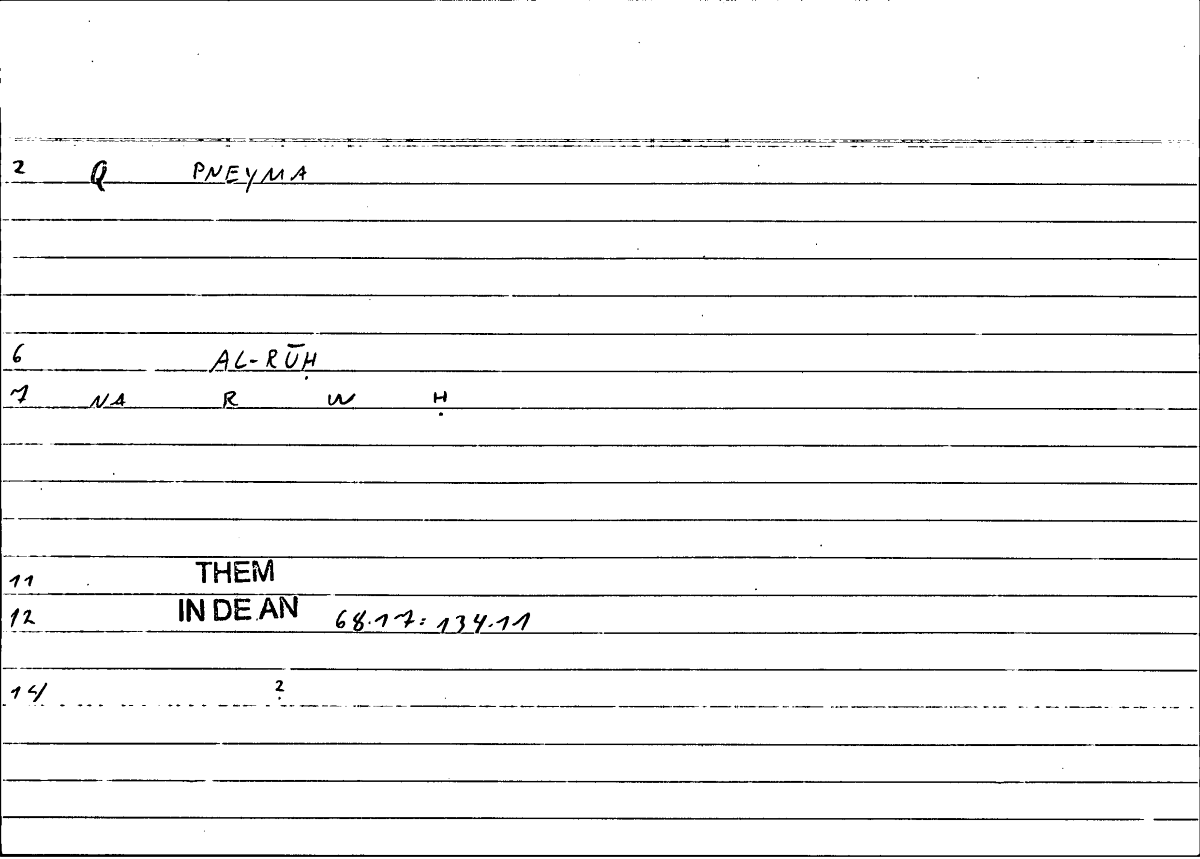 2 Q PNEYMA
6 AL-RŪḤ
7 NA R W Ḥ
11 THEM
12 IN DE AN 68.17: 134.11
14 2